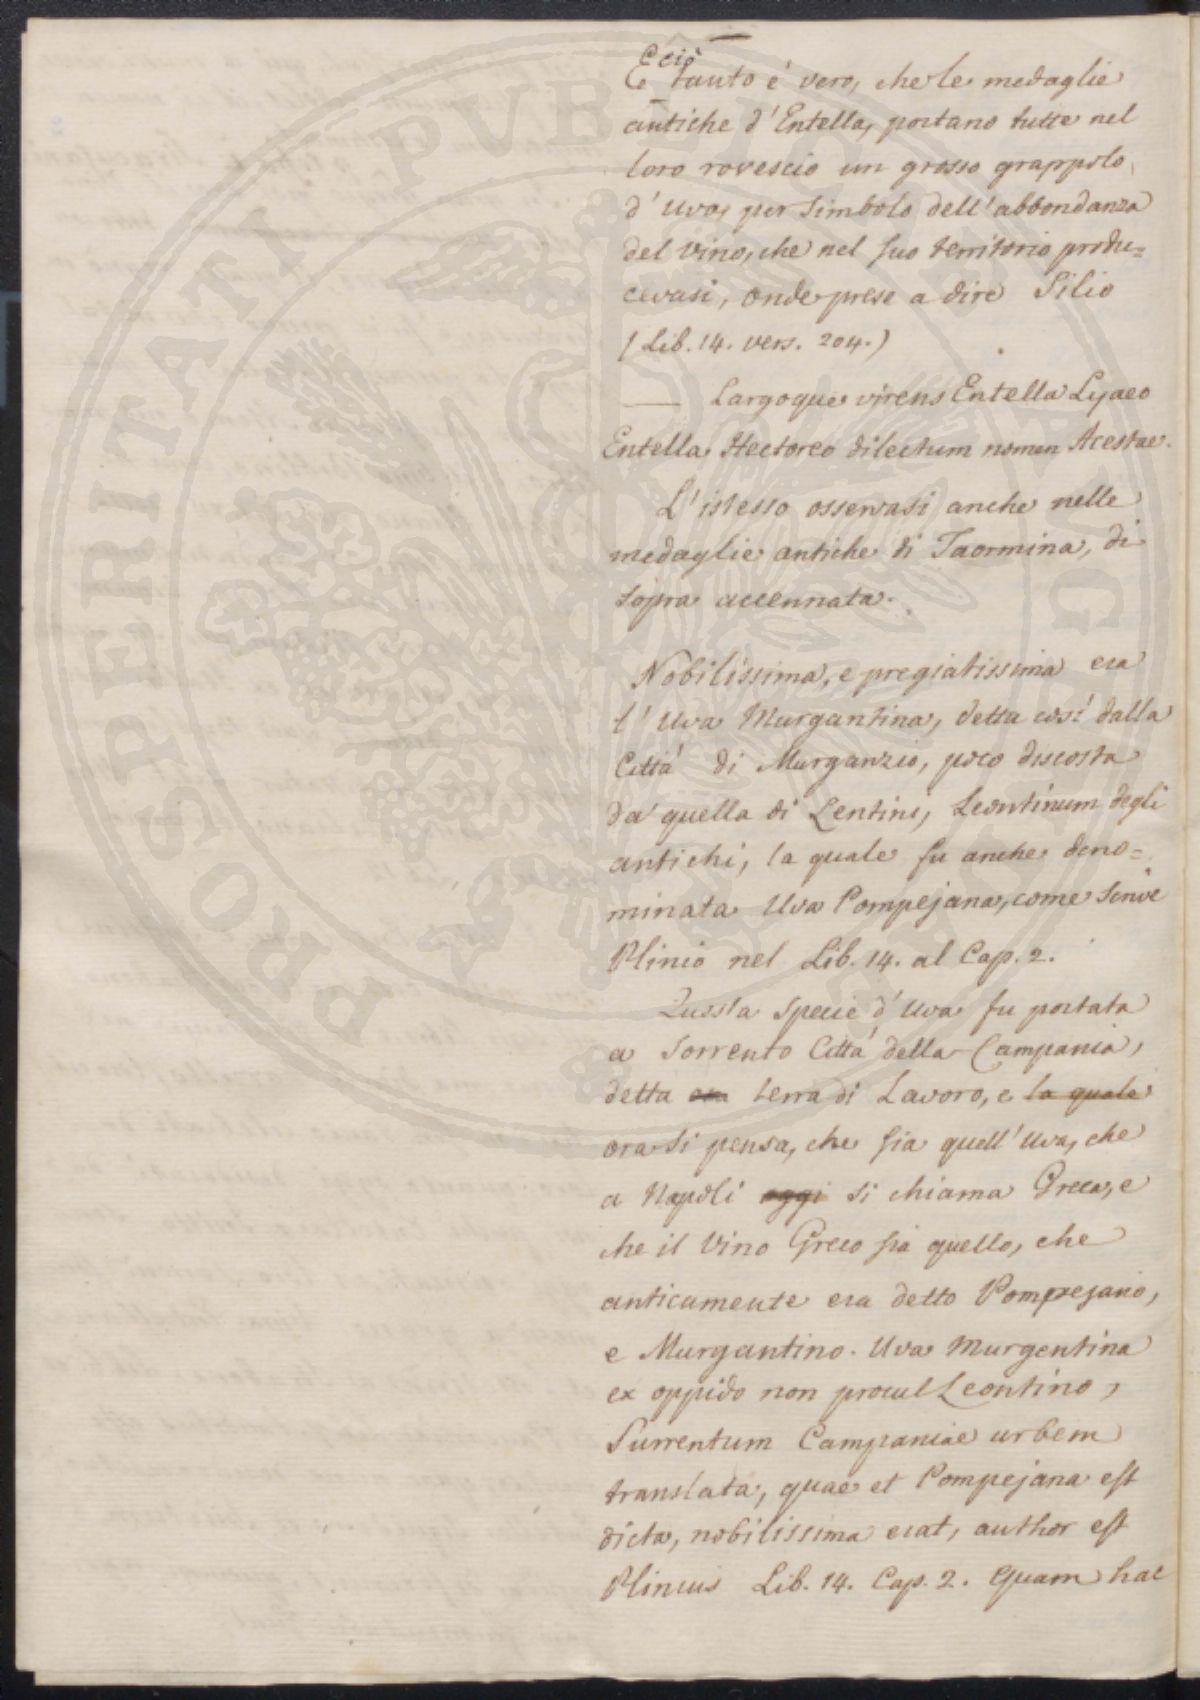 E ciò tanto è vero, che le medaglie
antiche d'Entella, portano tutte nel
loro rovescio un grosso grappolo
d'Uva, per simbolo dell'abbondanza
del Vino, che nel suo territorio produ=
cevasi, onde prese a dire Silio
(Lib. 14. vers. 204.)
—— Largoque virens Entella Lyaeo
Entella Hectoreo dilectum nomen Acestae.
L'istesso osservasi anche nelle
medaglie antiche di Taormina, di
sopra accennata.
Nobilissima, e pregiatissima era
l'Uva Murgantina, detta così dalla
Città di Murganzio, poco discosta
da quella di Lentini, Leontinum degli
antichi, la quale fu anche deno=
minata Uva Pompejana, come scrive
Plinio nel Lib. 14. al Cap. 2.
Questa specie d'Uva fu portata
a Sorrento Città della Campania,
detta ora terra di Lavoro, e la quale
ora si pensa, che sia quell'Uva, che
a Napoli oggi si chiama Greca, e
che il Vino Greco sia quello, che
anticamente era detto Pompejano,
e Murgantino. Uva Murgentina
ex oppido non procul Leontino,
Surrentum Campaniae urbem
translata, quae et Pompejana est
dicta, nobilissima erat, author est
Plinius Lib. 14. Cap. 2. Quam hac
PROSPERITATI PUBLICAE